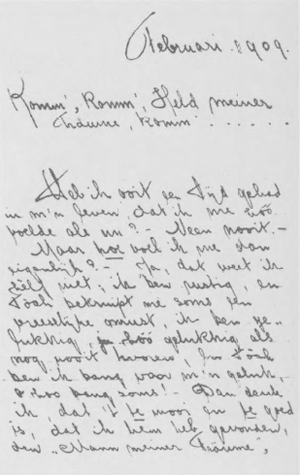 Februari 1909.
Komm', Komm', Held meiner
Träume, Komm . . . . . .
Heb ik ooit een tijd gehad
in m'n leven, dat ik me zóó
voelde als nu? - Neen nooit. -
Maar hoe voel ik me dan
eigenlijk? - Ja, dat weet ik
zelf niet; ik ben rustig, en
tóch bekruipt me soms een
vreeselijke onrust, ik ben ge-
lukkig, zóó gelukkig als
nog nooit tevoren, en tóch
ben ik bang voor m'n geluk,
o zoo bang soms! - Dan denk
ik, dat 't te mooi en te goed
is, dat ik hem heb gevonden,
den "Mann meiner Träume",